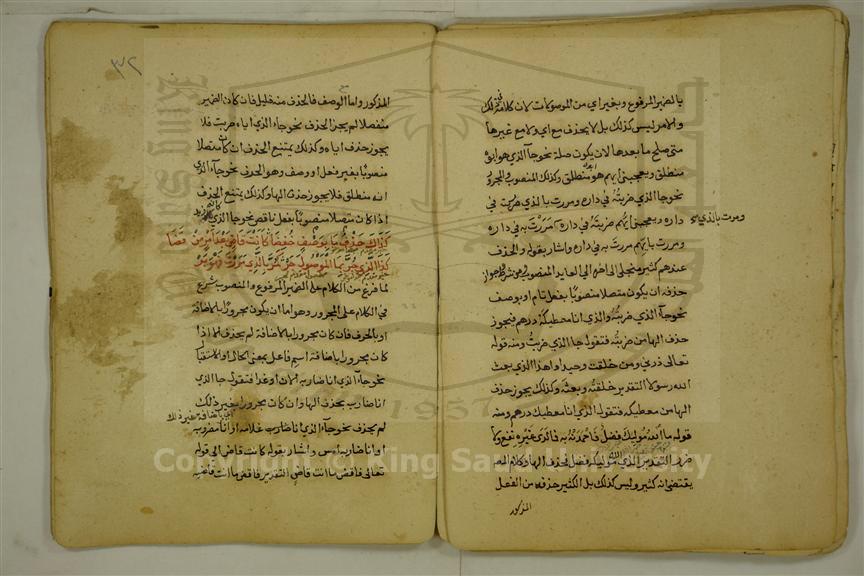 بالضمير المرفوع وبغير اي من الموصولات لان كلامه في ذلك
والامر ليس كذلك بل لا يحذف مع اي ولا مع غيرها
متى صلح ما بعدها لان يكون صلة نحو جا الذي هو ابوه
منطلق ويعجبني ايهم هو منطلق وكذلك المنصوب والمجرور
نحو جا الذي ضربته في داره ومررت بالذي مررت به في
داره ويعجبني ايهم ضربته في داره ومررت به في داره
ومررت بالذي
ومررت بايهم مررت به في داره واشار بقوله والحذف
عندهم كثير منجلي الى اخره الى العايد المنصوب وشرط جواز
حذفه ان يكون متصلا منصوبا بفعل تام او بوصف
نحو جا الذي ضربته والذي انا معطيكه درهم فيجوز
حذف الها من ضربته فتقول جا الذي ضربت ومنه قوله
تعالى ذرني ومن خلقت وحيدا واهذا الذي بعث
الله رسولا التقدير خلقته وبعثه وكذلك يجوز حذف
الها من معطيكه فتقول الذي انا معطيك درهم ومنه
قوله ما الله موليك فضل فاحمدنه به فما لدى غيره نفع ولا
ضرر التقدير الذي الله موليكه فضل فحذف الها وكلام المصـ
يقتضي انه كثير وليس كذلك بل الكثير حذفه من الفعل
المذكور
٣٢
المذكور واما الوصف فالحذف منه قليل فان كان الضمير
منفصلا لم يجز الحذف نحو جا الذي اياه ضربت فلا
يجوز حذف اياه وكذلك يمتنع الحذف ان كان متصلا
منصوبا بغير فعل او وصف وهو الحرف نحو جا الذي
انه منطلق فلا يجوز حذف الها وكذلك يمتنع الحذف
اذا كان متصلا منصوبا بفعل ناقص نحو جا الذي كانه زيد
كذاك حذف ما بوصف خفضا كانت قاض بعد امر من قضا
كذا الذي جر بما الموصول جر كمر بالذي مررت فهو بر
لما فرغ من الكلام على الضمير المرفوع والمنصوب شرع
في الكلام على المجرور وهو اما ان يكون مجرورا بالاضافة
او بالحرف فان كان مجرورا بالاضافة لم يحذف الا اذا
كان مجرورا باضافة اسم فاعل بمعنى الحال او الاستقبال
نحو جا الذي انا ضاربه الان او غدا فتقول جا الذي
انا ضارب بحذف الها وان كان مجرورا بغير ذلك
لم يحذف نحو جا الذي انا ضارب غلامه او انا مضروبه
او انا ضاربه امس واشار بقوله كانت قاض الى قوله
تعالى فاقض ما انت قاض التقدير فاقض ما انت قاضيه
Copyright © King Saud University
1957